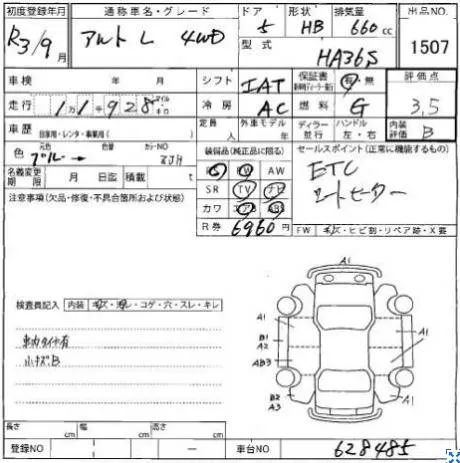 初度登録年月 通称車名・グレード ドア 形状 排気量 出品NO
R3/9月 アルト L 4WD 5 HB 660cc 1507
型式 HA36S
車検 年 月 シフト IAT 保証書 有・無 評価点
走行 1万1千928 冷房 AC 燃料 G 3.5
定員 外車モデル ディーラー ハンドル 内装
車歴 自家用・レンタ・事業用( ) 人 年 並行 左・右 評価 B
元色 色替 カラーNO 装備品(純正品に限る) セールスポイント(正常に機能するもの)
色 ブルー ZJH PS PW AW ETC
名義変更期限 月 日迄 積載 t SR TV ナビ シートヒーター
注意事項(欠品・修復・不具合箇所および状態) カワ エアB ABS
R券 6960円 FW キズ・ヒビ割・リペア跡・X要
検査員記入 内装 キズ・汚レ・コゲ・穴・スレ・キレ
車内タイヤ有
小キズB
A1
A1
B1
A2
AB3
B2
A3
A1
A1
長さ cm 幅 cm 高さ cm
登録NO 車台NO 628485